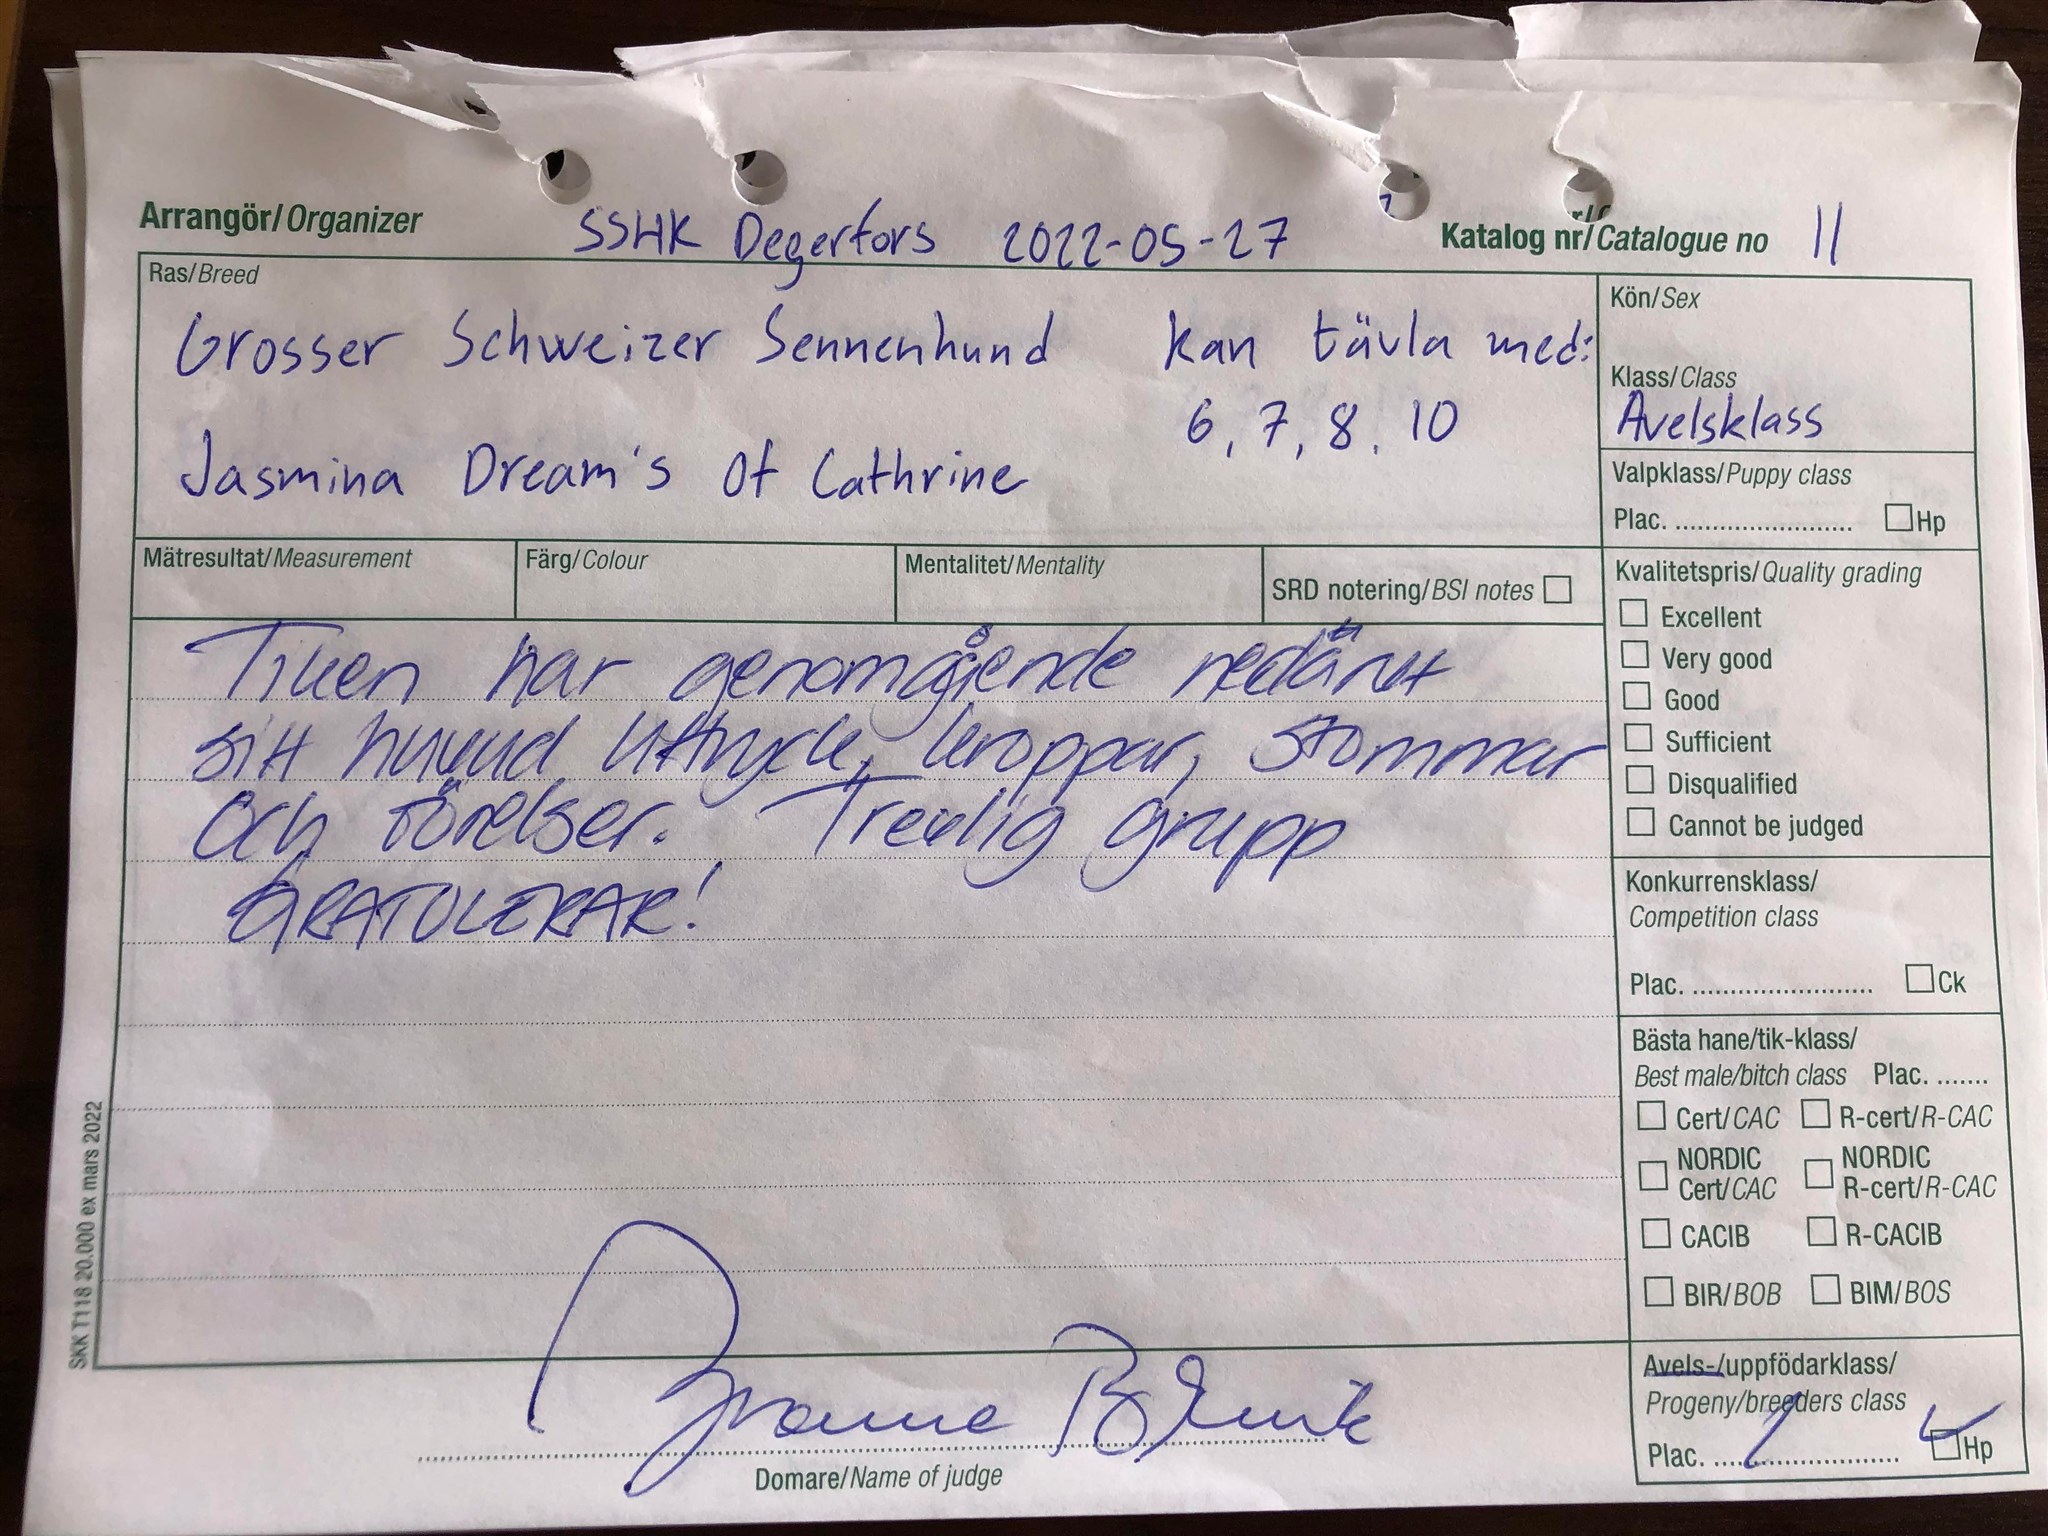 Arrangör/Organizer SSHK Degerfors 2022-05-27 Katalog nr/Catalogue no 11
Ras/Breed
Grosser Schweizer Sennenhund kan tävla med:
6, 7, 8, 10
Jasmina Dream's Of Cathrine
Kön/Sex
Klass/Class
Avelsklass
Valpklass/Puppy class
Plac. ........................ Hp
Mätresultat/Measurement Färg/Colour Mentalitet/Mentality SRD notering/BSI notes
Tiken har genomgående nedärvt
sitt huvud uttryck, kroppar, stommar
och rörelser. Trevlig grupp
GRATULERAR!
Kvalitetspris/Quality grading
Excellent
Very good
Good
Sufficient
Disqualified
Cannot be judged
Konkurrensklass/
Competition class
Plac. ........................ Ck
Bästa hane/tik-klass/
Best male/bitch class Plac. .......
Cert/CAC R-cert/R-CAC
NORDIC Cert/CAC NORDIC R-cert/R-CAC
CACIB R-CACIB
BIR/BOB BIM/BOS
Avels-/uppfödarklass/
Progeny/breeders class
Plac. ........................ Hp
Domare/Name of judge
SKK T118 20.000 ex mars 2022